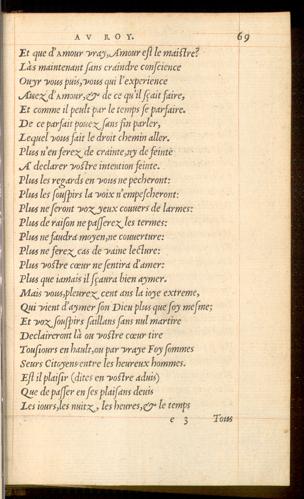 AV ROY. 69
Et que d'Amour vray, Amour est le maistre?
Làs maintenant sans craindre conscience
Ouyr vous puis, vous qui l'experience
Auez d'Amour, & de ce qu'il sçait faire,
Et comme il peult par le temps se parfaire.
De ce parfait pouez sans fin parler,
Lequel vous fait le droit chemin aller.
Plus n'en ferez de crainte, ny de feinte
A declarer vostre intention feinte.
Plus les regards en vous ne pecheront:
Plus les souspirs la voix n'empescheront:
Plus ne seront voz yeux couuers de larmes:
Plus de raison ne passerez les termes:
Plus ne faudra moyen, ne couuerture:
Plus ne ferez cas de vaine lecture:
Plus vostre cœur ne sentira d'amer:
Plus que iamais il sçaura bien aymer.
Mais vous, pleurez cent ans la ioye extreme,
Qui vient d'aymer son Dieu plus que soy mesme;
Et voz souspirs saillans sans nul martire
Declaireront là ou vostre cœur tire
Tousiours en hault, ou par vraye Foy sommes
Seurs Citoyens entre les heureux hommes.
Est il plaisir (dites en vostre aduis)
Que de passer en ses plaisans deuis
Les iours, les nuitz, les heures, & le temps
e 3 Tous